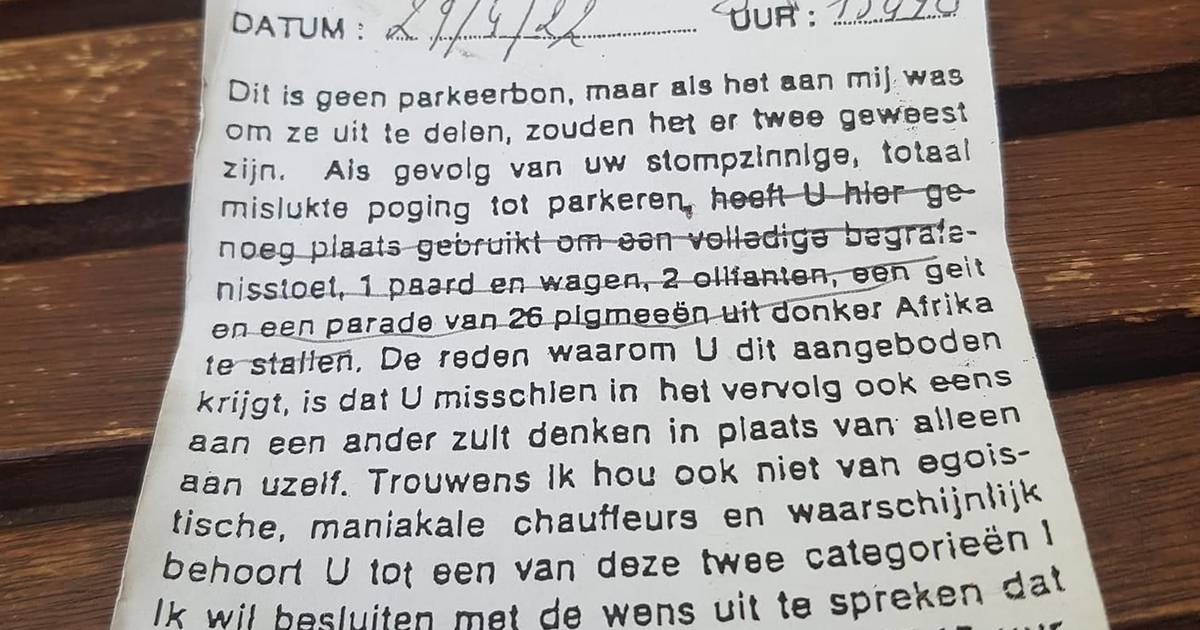 DATUM : 29/4/22 UUR :
Dit is geen parkeerbon, maar als het aan mij was
om ze uit te delen, zouden het er twee geweest
zijn. Als gevolg van uw stompzinnige, totaal
mislukte poging tot parkeren, heeft U hier ge-
noeg plaats gebruikt om een volledige begrafe-
nisstoet, 1 paard en wagen, 2 olifanten, een geit
en een parade van 26 pigmeeën uit donker Afrika
te stallen. De reden waarom U dit aangeboden
krijgt, is dat U misschien in het vervolg ook eens
aan een ander zult denken in plaats van alleen
aan uzelf. Trouwens ik hou ook niet van egois-
tische, maniakale chauffeurs en waarschijnlijk
behoort U tot een van deze twee categorieën !
Ik wil besluiten met de wens uit te spreken dat